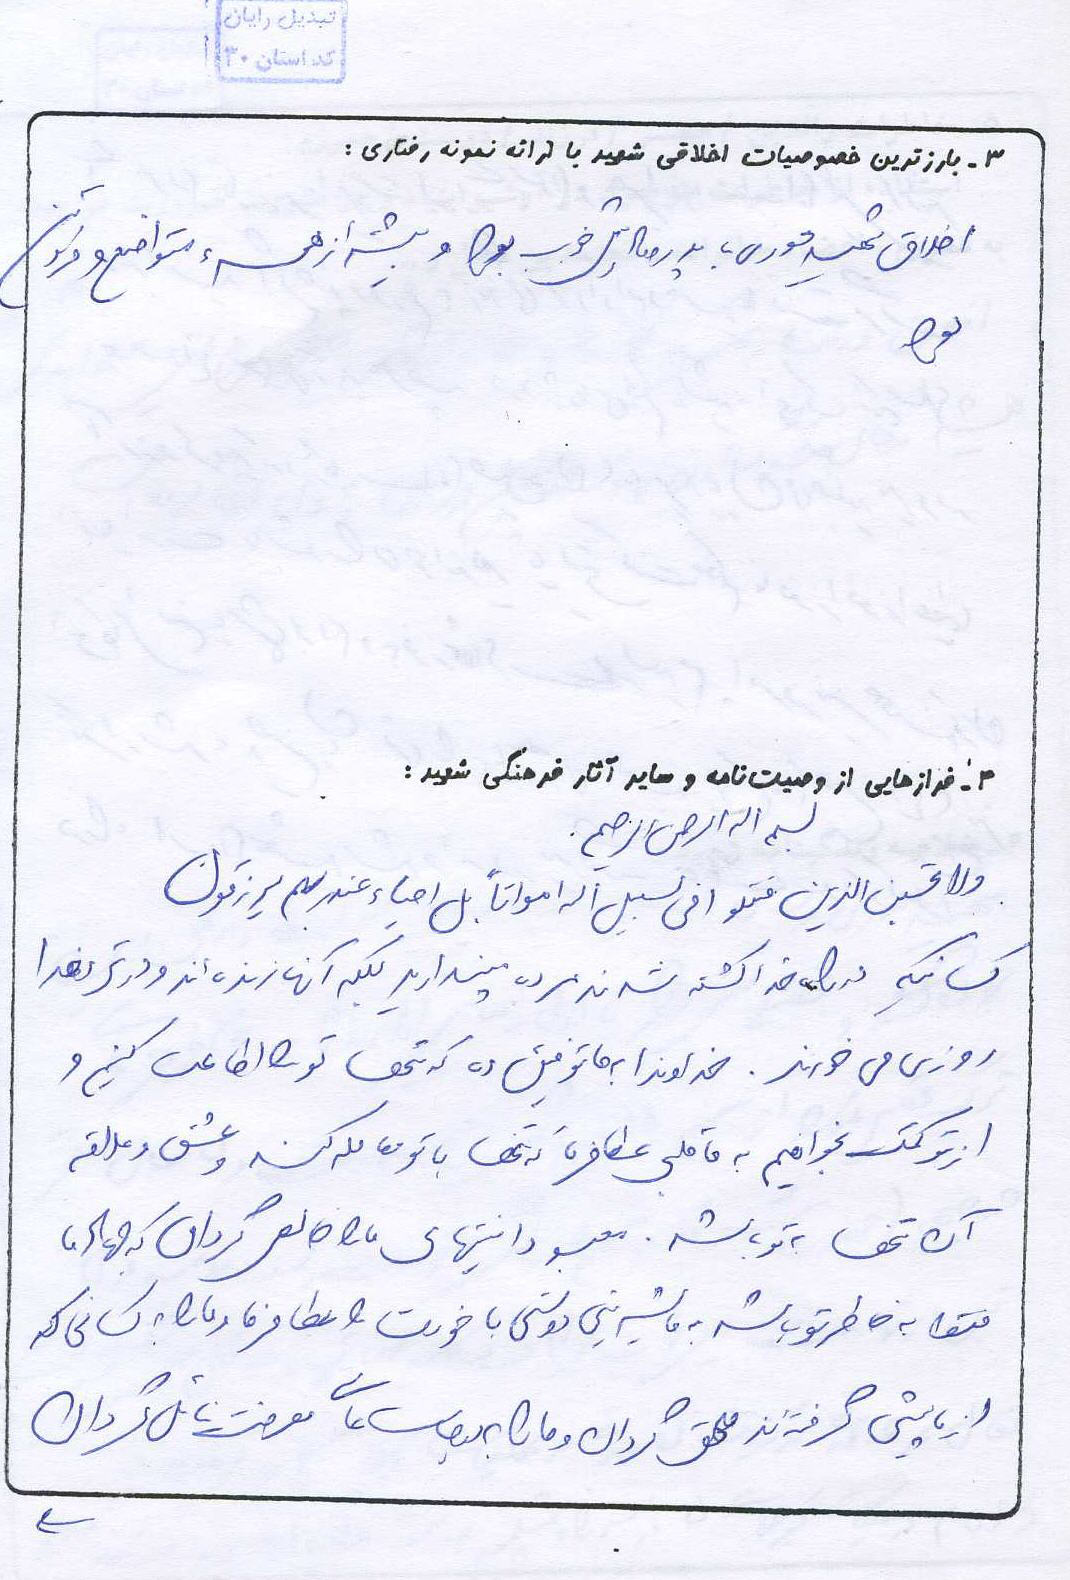 تبدیل رایان
کد استان ۳۰
۳- بارزترین خصوصیات اخلاقی شهید با ارائه نمونه رفتاری :
اخلاق شهید با پدر و مادرش خوب بود و بیشتر از همه متواضع و فروتن
بود
۴- فرازهایی از وصیت‌نامه و سایر آثار فرهنگی شهید :
بسم اله الرحمن الرحیم.
ولا تحسبن الذین قتلوا فی سبیل اله امواتاً بل احیاء عند ربهم یرزقون
کسانیکه در راه خدا کشته شدند مرده مپندارید بلکه آنها زنده اند و در نزد خدا
روزی می خورند . خداوندا به ما توفیق ده که تنها تو را اطاعت کنیم و
از تو کمک بخواهیم به ما قلبی عطا فرما که تنها با تو معامله کند و عشق و علاقه
آن تنها به تو باشد . معبودا نیتهای ما را خالص گردان که جهاد ما
فقط به خاطر تو باشد به ما شیرینی دوستی با خودت را عطا فرما و ما را به کسانی که
از ما پیشی گرفته اند ملحق گردان و ما را به معرفت نائل گردان